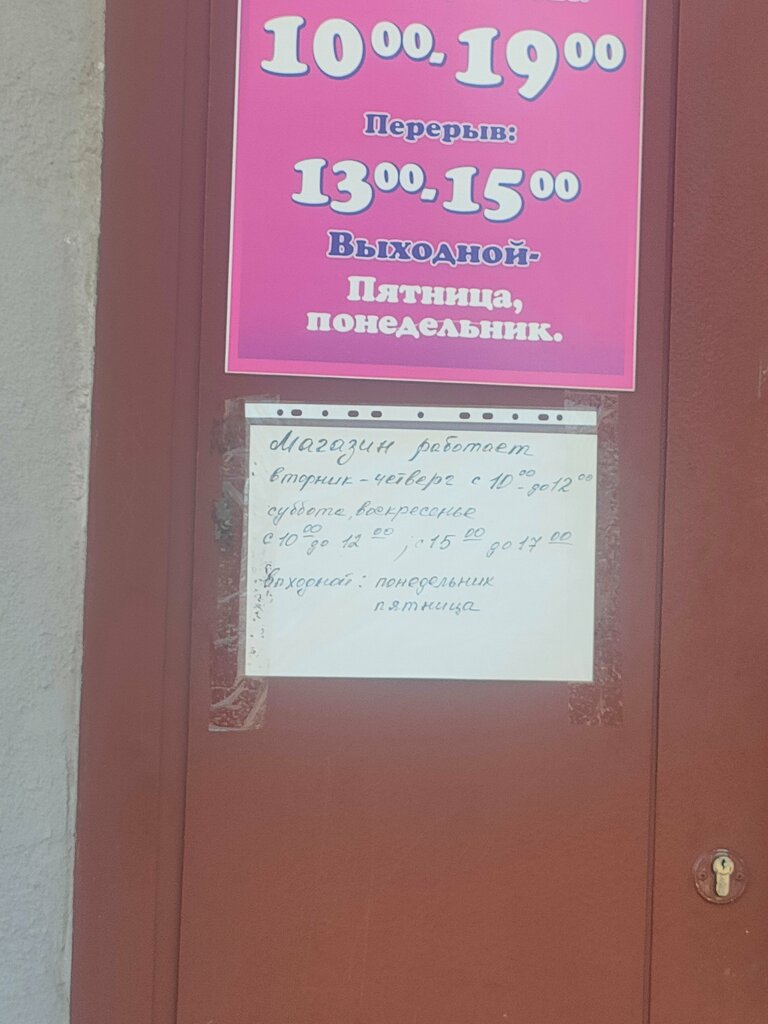 10⁰⁰-19⁰⁰
Перерыв:
13⁰⁰-15⁰⁰
Выходной-
Пятница,
понедельник.
Магазин работает
вторник-четверг с 10⁰⁰-до 12⁰⁰
суббота, воскресенье
с 10⁰⁰ до 12⁰⁰; с 15⁰⁰ до 17⁰⁰
Выходной: понедельник
пятница